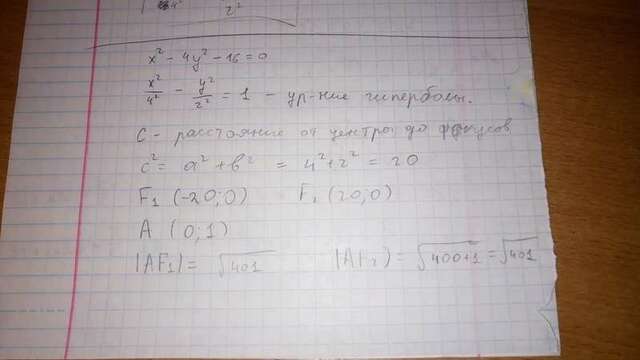 x² - 4y² - 16 = 0
x²/4² - y²/2² = 1 - ур-ние гиперболы.
C - расстояние от центра до фокусов
c² = a² + b² = 4² + 2² = 20
F₁ (-20; 0) F₂ (20; 0)
A (0; 1)
|AF₁| = √401 |AF₂) = √400+1 = √401